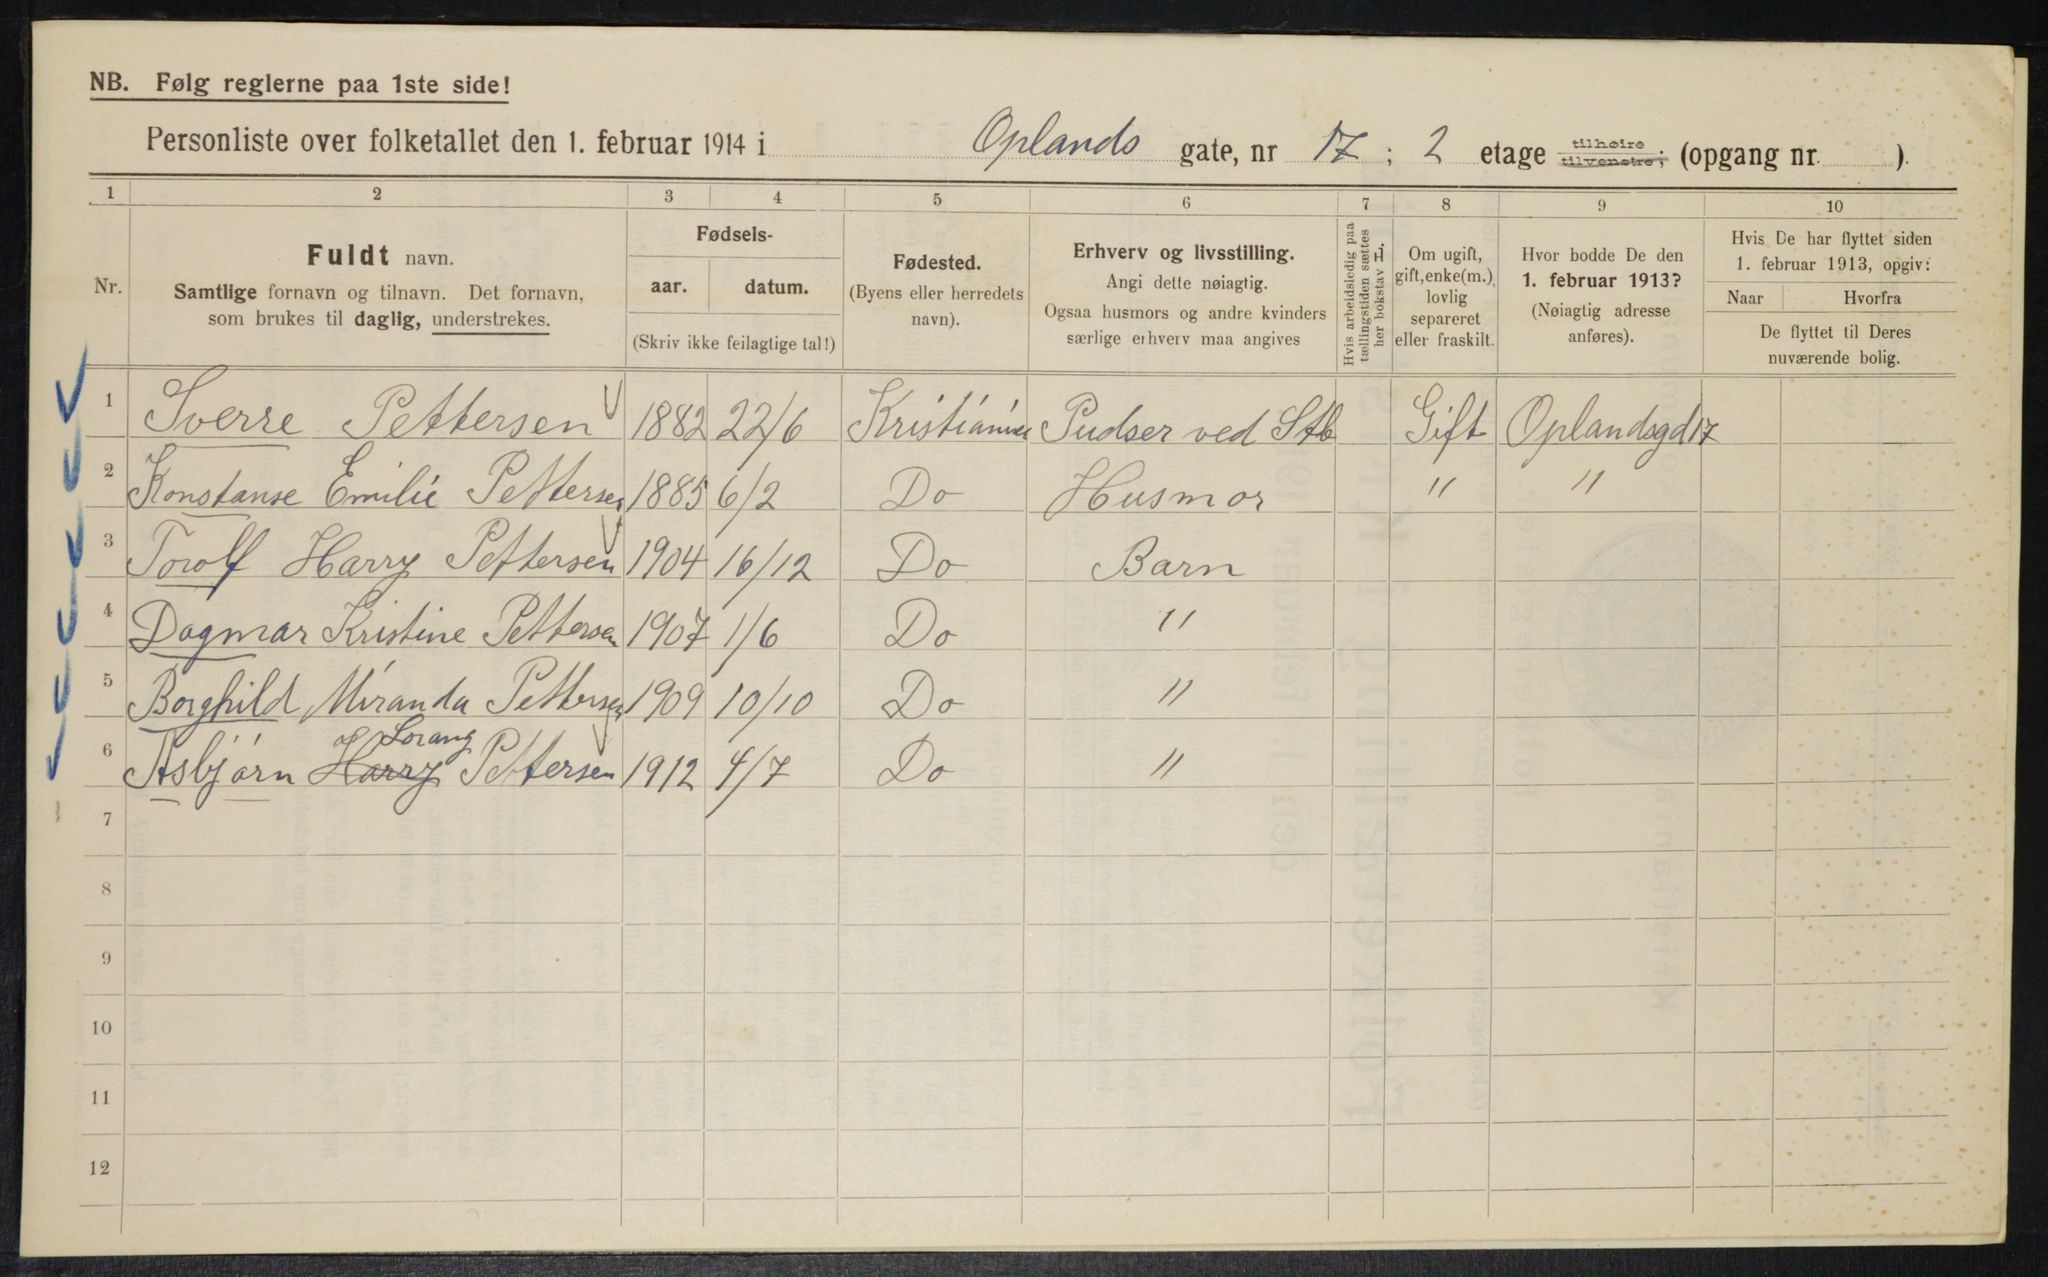 NB. Følg reglerne paa 1ste side!
Personliste over folketallet den 1. februar 1914 i Oplands gate, nr 17; 2 etage tilhøire tilvenstre; (opgang nr. ).
1 2 3 4 5 6 7 8 9 10
Nr.
Fuldt navn.
Samtlige fornavn og tilnavn. Det fornavn,
som brukes til daglig, understrekes.
Fødsels-
aar. datum.
(Skriv ikke feilagtige tal!)
Fødested.
(Byens eller herredets
navn).
Erhverv og livsstilling.
Angi dette nøiagtig.
Ogsaa husmors og andre kvinders
særlige erhverv maa angives
Hvis arbeidsledig paa
tællingstiden sættes
her bokstav L.
Om ugift,
gift, enke(m.),
lovlig
separeret
eller fraskilt.
Hvor bodde De den
1. februar 1913?
(Nøiagtig adresse
anføres).
Hvis De har flyttet siden
1. februar 1913, opgiv:
Naar Hvorfra
De flyttet til Deres
nuværende bolig.
1 Sverre Pettersen 1882 22/6 Kristiania Pudser ved Stb Gift Oplandsgd 17
2 Konstanse Emilie Pettersen 1885 6/2 Do Husmor " "
3 Torolf Harry Pettersen 1904 16/12 Do Barn
4 Dagmar Kristine Pettersen 1907 1/6 Do "
5 Borghild Miranda Pettersen 1909 10/10 Do "
6 Asbjørn Harry Lorang Pettersen 1912 4/7 Do "
7
8
9
10
11
12